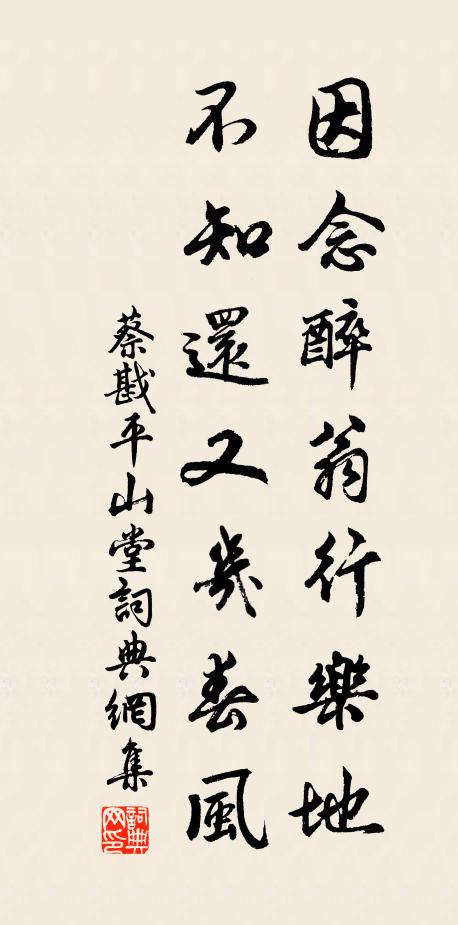 因念醉翁行樂地
不知還又幾春風
蔡戡平山堂詞典網集
詞典网印